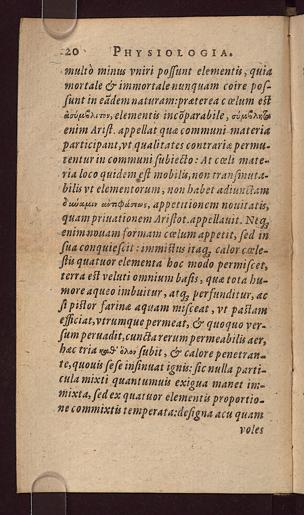 20 PHYSIOLOGIA.
multò minus vniri possunt elementis, quia
mortale & immortale nunquam coire pos-
sunt in eãdem naturam: præterea cœlum est
elementis incõparabile,
enim Arist. appellat quæ communi materia
participant, vt qualitates contrariæ permu-
tentur in communi subiecto: At cœli mate-
ria loco quidem est mobilis, non transmuta-
bilis vt elementorum, non habet adiunctam
appetitionem nouitatis,
quam priuationem Aristot. appellauit. Neq;
enim nouam formam cœlum appetit, sed in
sua conquiescit: immißtus itaq; calor cœle-
stis quatuor elementa hoc modo permiscet,
terra est veluti omnium basis, quæ tota hu-
more aqueo imbuitur, atq; perfunditur, ac
si pistor farinæ aquam misceat, vt pastam
efficiat, vtrumque permeat, & quoquo ver-
sum peruadit, cuncta rerum permeabilis aer,
hæc tria καθ' ὅλου subit, & calore penetran-
te, quouis sese insinuat ignis: sic nulla parti-
cula mixti quantumuis exigua manet im-
mixta, sed ex quatuor elementis proportio-
ne commixtis temperata: designa acu quam
voles